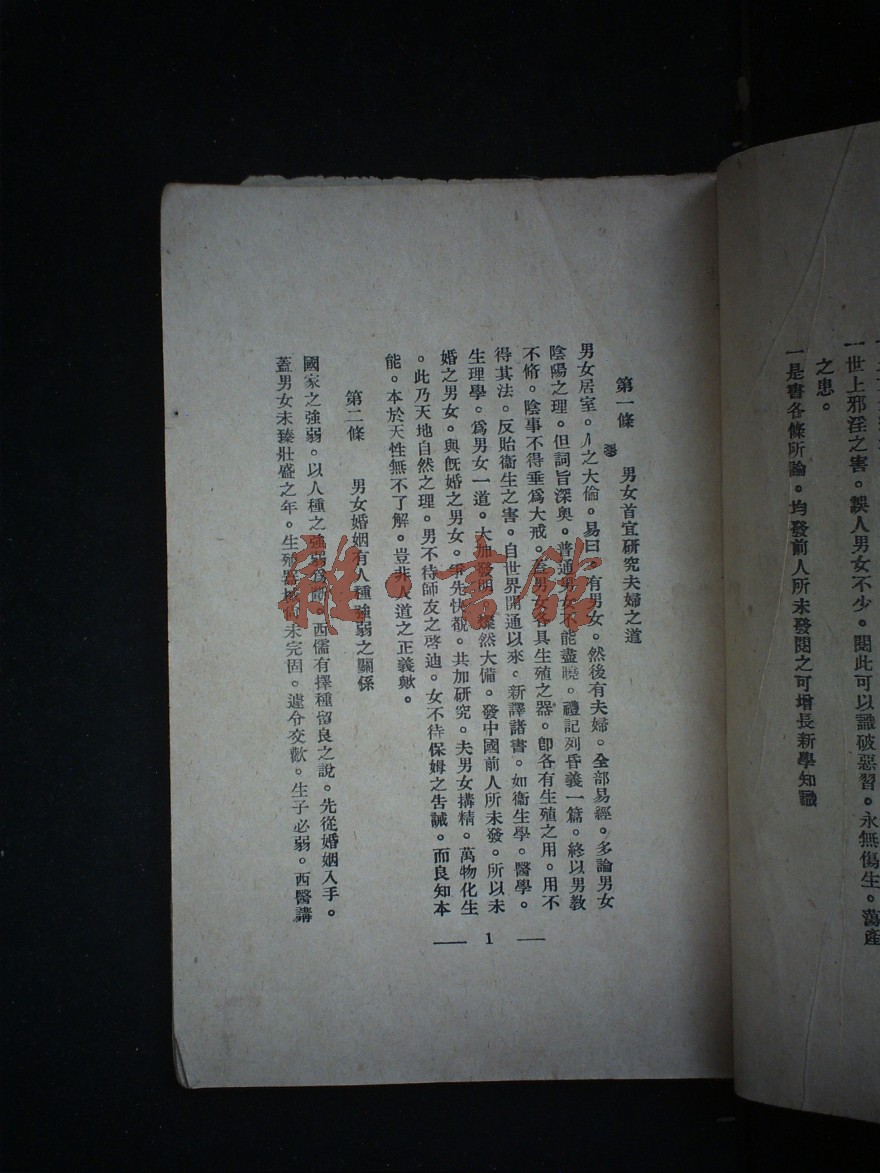 一世上邪淫之害。誤人男女不少。閱此可以識破惡習。永無傷生。蕩產
之患。
一是書各條所論。均發前人所未發閱之可增長新學知識
第一條 男女首宜研究夫婦之道
男女居室。人之大倫。易曰。有男女。然後有夫婦。全部易經。多論男女
陰陽之理。但詞旨深奧。普通男女不能盡曉。禮記列昏義一篇。終以男教
不脩。陰事不得垂爲大戒。蓋男女各具生殖之器。卽各有生殖之用。用不
得其法。反貽衞生之害。自世界開通以來。新譯諸書。如衞生學。醫學。
生理學。爲男女一道。大加發明。燦然大備。發中國前人所未發。所以未
婚之男女。與旣婚之男女。爭先快覩。共加研究。夫男女搆精。萬物化生
。此乃天地自然之理。男不待師友之啓迪。女不待保姆之告誡。而良知本
能。本於天性無不了解。豈非人道之正義歟。
第二條 男女婚姻有人種強弱之關係
國家之強弱。以人種之強弱爲斷。西儒有擇種留良之說。先從婚姻入手。
蓋男女未臻壯盛之年。生殖器械尙未完固。遽令交歡。生子必弱。西醫講
— 1 —
雜·書館